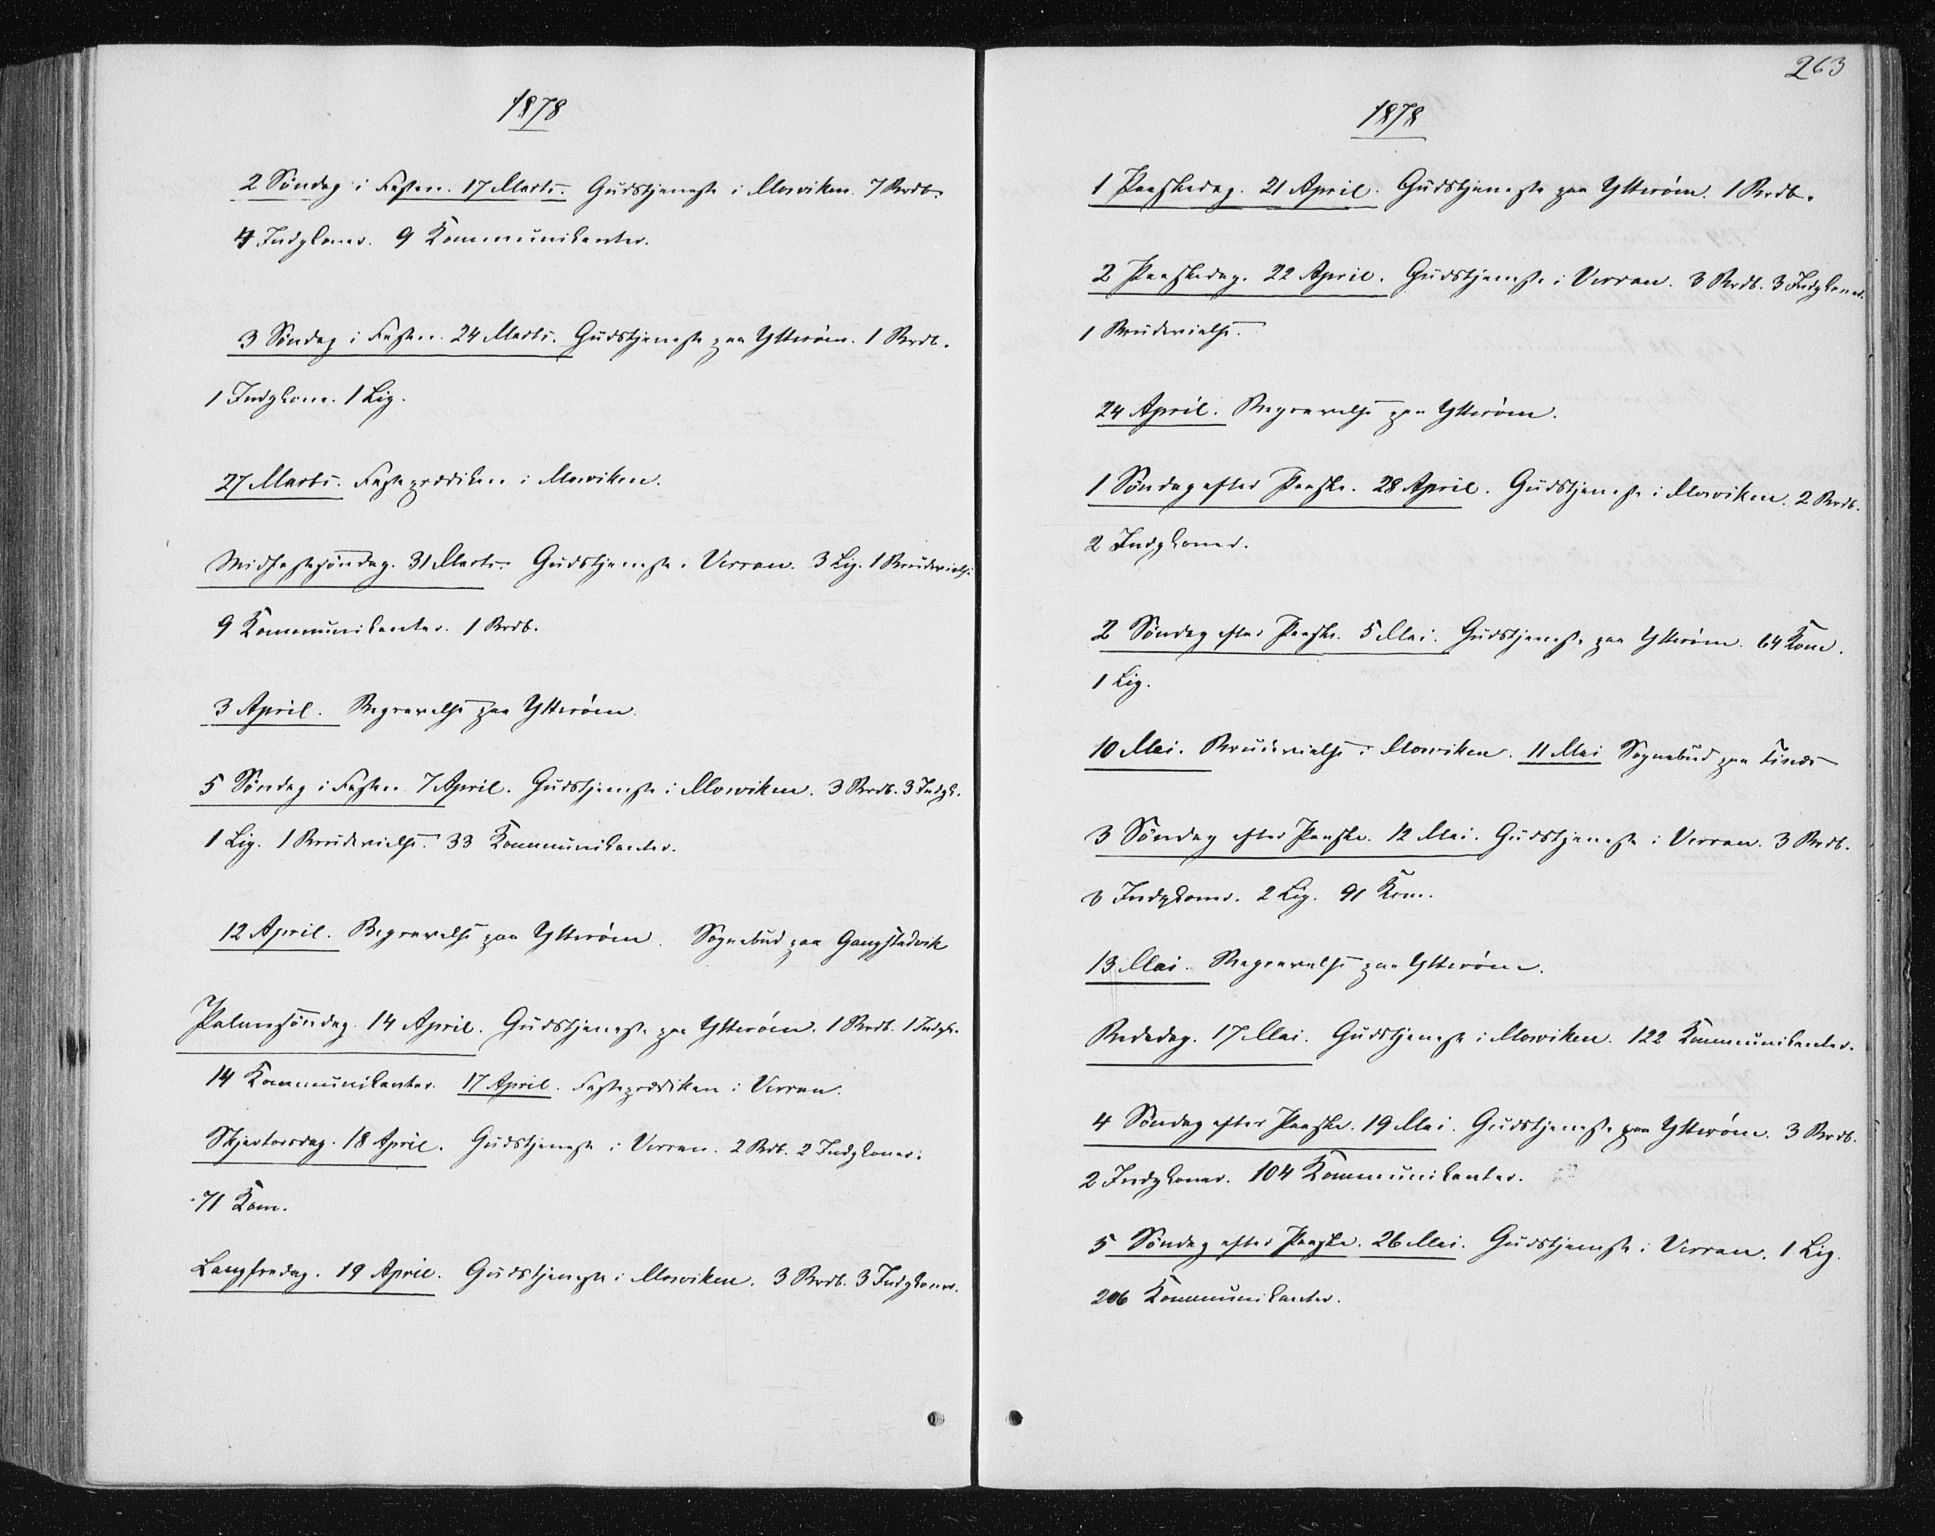 1878
2 Söndag i Fasten. 17 Marts. Gudstjeneste i Mosviken. 7 Brdb.
4 Indgkoner. 9 Kommunikanter.
3 Söndag i Fasten. 24 Marts. Gudstjeneste paa Ytterøen. 1 Brdb.
1 Indgkone. 1 Lig.
27 Marts. Fasteprædiken i Mosviken.
Midfastesöndag. 31 Marts. Gudstjeneste i Verran. 3 Lig. 1 Brudevielse
9 Kommunikanter. 1 Brdb.
3 April. Begravelse paa Ytterøen.
5 Söndag i Fasten. 7 April. Gudstjeneste i Mosviken. 3 Brdb. 3 Indgk.
1 Lig. 1 Brudevielse. 33 Kommunikanter.
12 April. Begravelse paa Ytterøen. Sognebud paa Gangstadvik
Palmesöndag. 14 April. Gudstjeneste paa Ytterøen. 1 Brdb. 1 Indgk.
14 Kommunikanter. 17 April. Fasteprædiken i Verran.
Skjertorsdag. 18 April. Gudstjeneste i Verran. 2 Brdb. 2 Indgkoner.
71 Kom.
Langfredag. 19 April. Gudstjeneste i Mosviken. 3 Brdb. 3 Indgkoner.
263
1878
1 Paaskedag. 21 April. Gudstjeneste paa Ytterøen. 1 Brdb.
2 Paaskedag. 22 April. Gudstjeneste i Verran. 3 Brdb. 3 Indgkoner.
1 Brudevielse.
24 April. Begravelse paa Ytterøen.
1 Söndag efter Paaske. 28 April. Gudstjeneste i Mosviken. 2 Brdb.
2 Indgkoner.
2 Söndag efter Paaske. 5 Mai. Gudstjeneste paa Ytterøen. 64 Kom.
1 Lig.
10 Mai. Brudevielse i Mosviken. 11 Mai Sognebud paa
3 Söndag efter Paaske. 12 Mai. Gudstjeneste i Verran. 3 Brdb.
3 Indgkoner. 2 Lig. 91 Kom.
13 Mai. Begravelse paa Ytterøen.
Bededag. 17 Mai. Gudstjeneste i Mosviken. 122 Kommunikanter.
4 Söndag efter Paaske. 19 Mai. Gudstjeneste paa Ytterøen. 3 Brdb.
2 Indgkoner. 104 Kommunikanter.
5 Söndag efter Paaske. 26 Mai. Gudstjeneste i Verran. 1 Lig.
206 Kommunikanter.